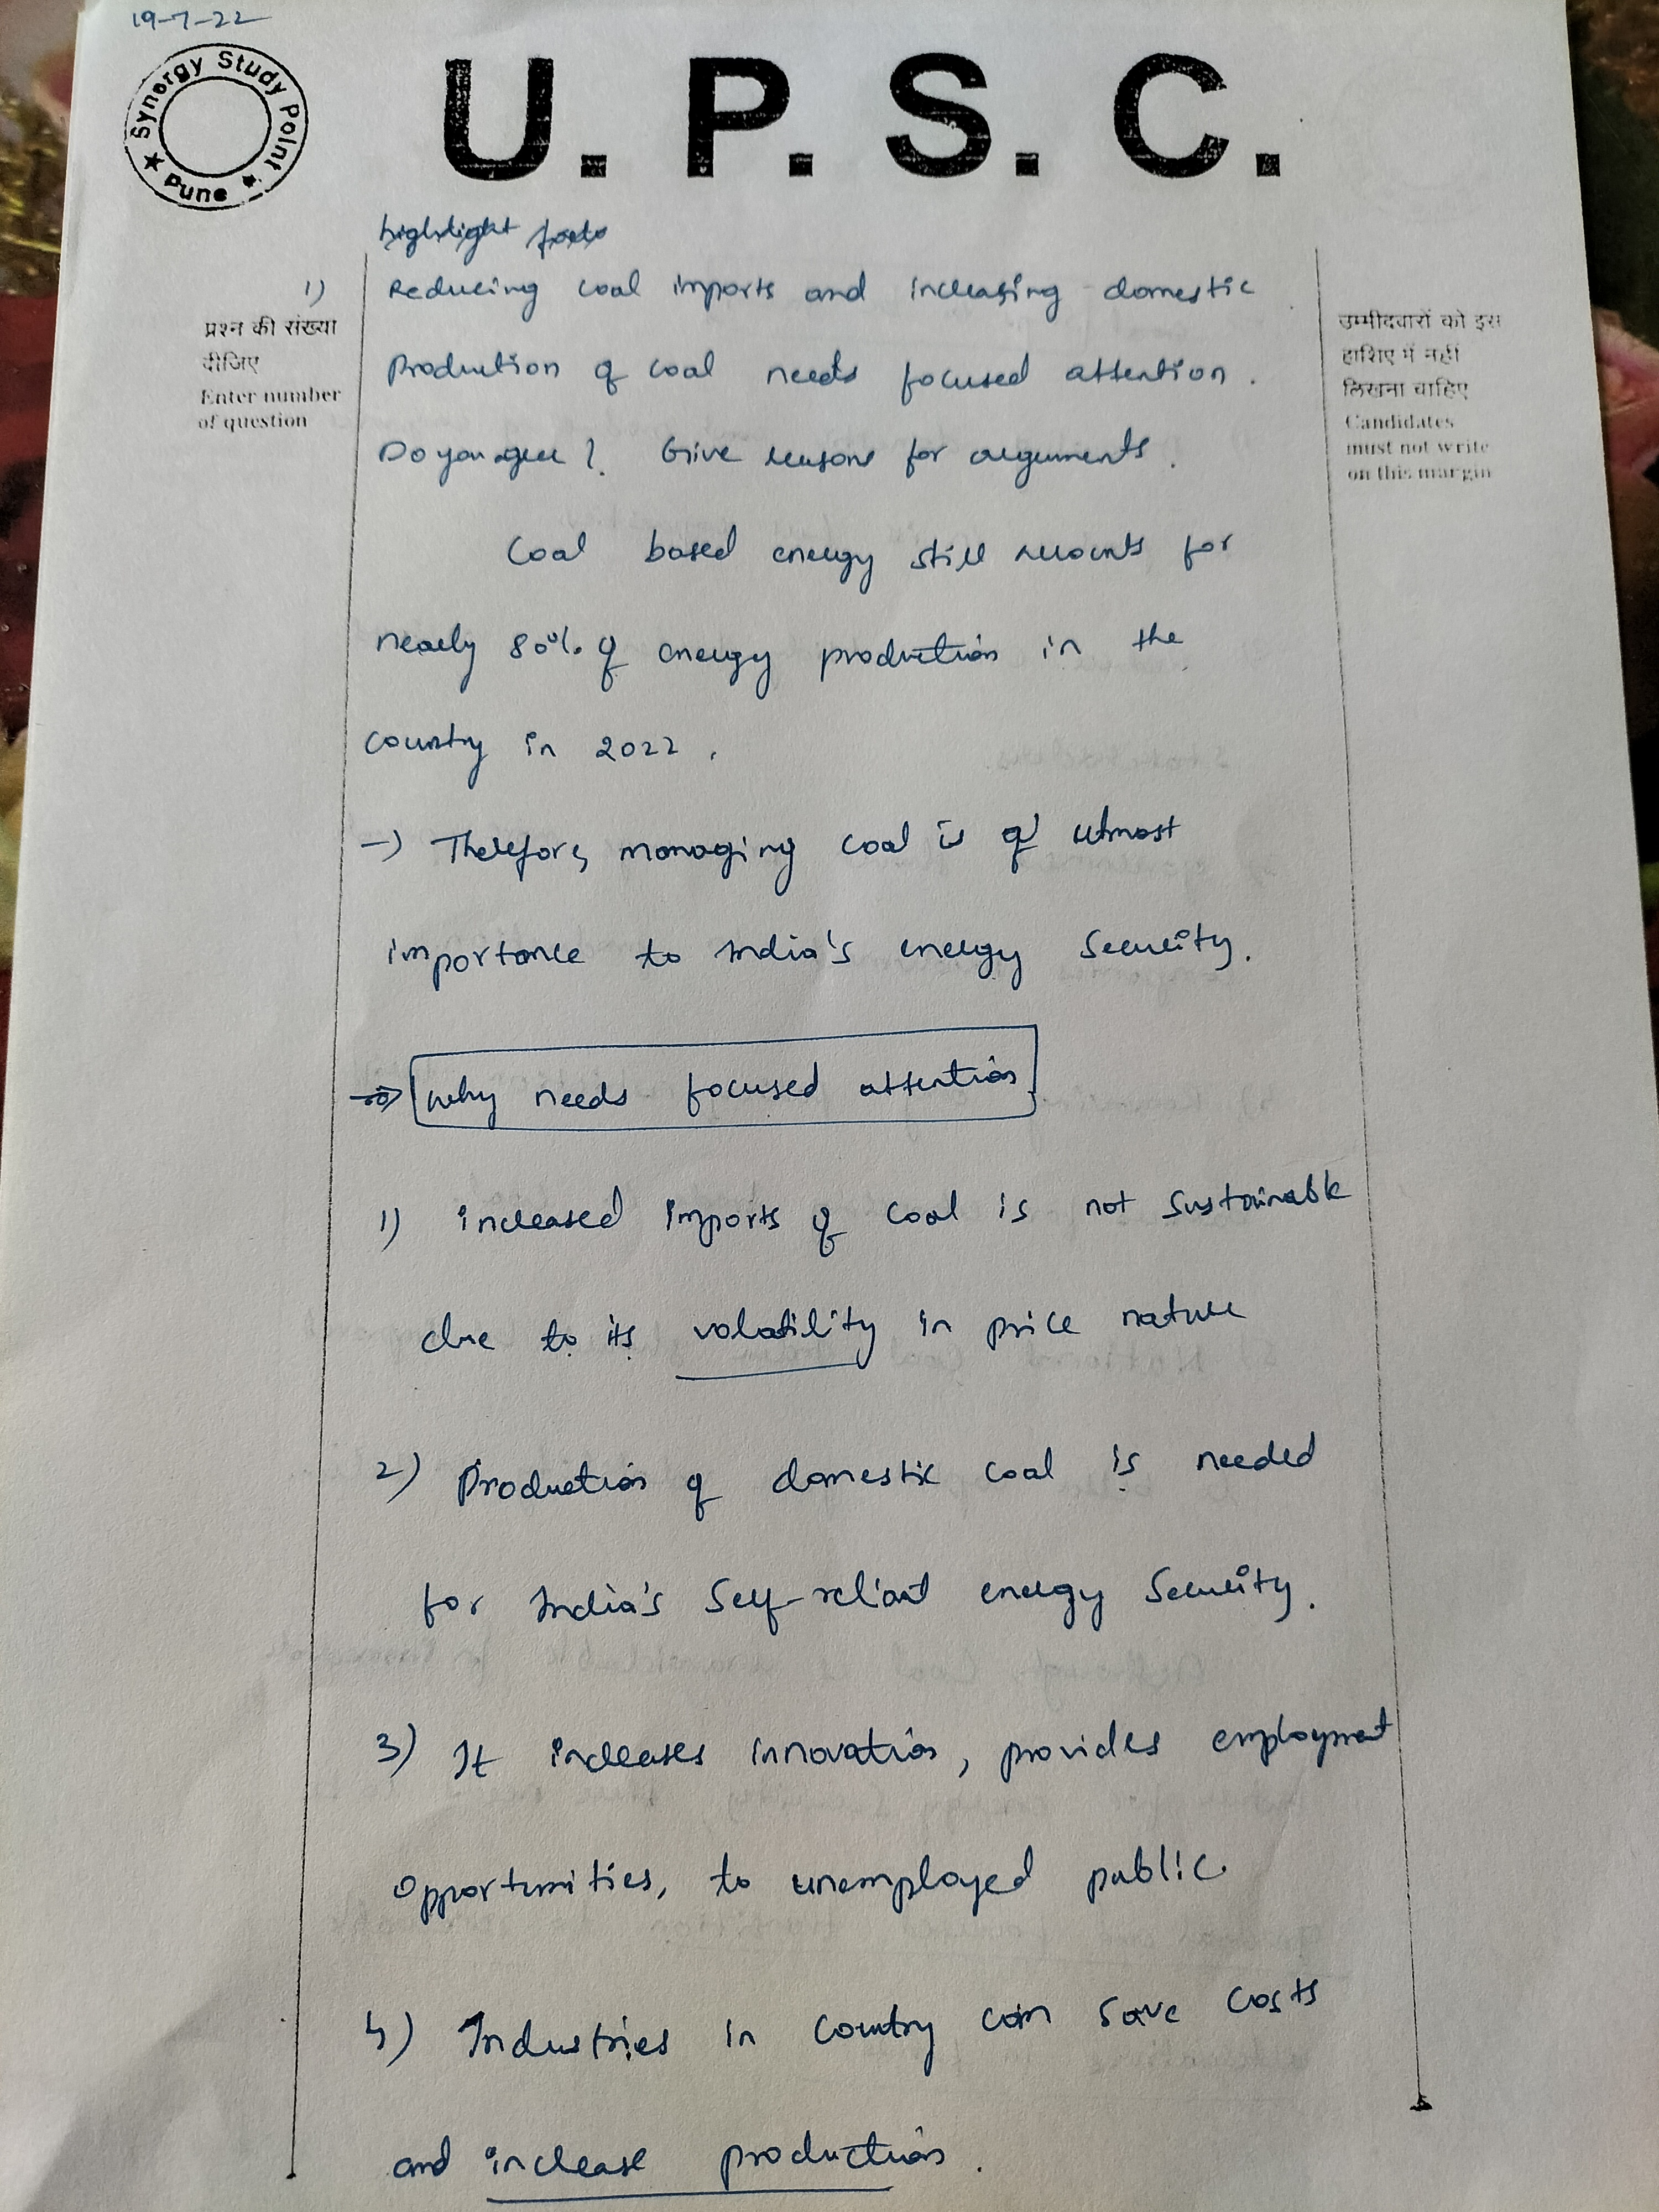 19-7-22
Synergy Study Point
★ Pune ★
U. P. S. C.
highlight facts
1)
Reducing coal imports and increasing domestic
Production of coal needs focused attention.
Do you agree? Give reasons for arguments.
प्रश्न की संख्या
दीजिए
Enter number
of question
उम्मीदवारों को इस
हाशिए में नहीं
लिखना चाहिए
Candidates
must not write
on this margin
Coal based energy still accounts for
nearly 80% of energy production in the
country in 2022.
→ Therefore, managing coal is of utmost
importance to India's energy security.
⇒ Why needs focused attention
1) increased imports of coal is not sustainable
due to its volatility in price nature
2) Production of domestic coal is needed
for India's Self-reliant energy Security.
3) It increases innovation, provides employment
Opportunities, to unemployed public.
4) Industries in country can save costs
and increase production.